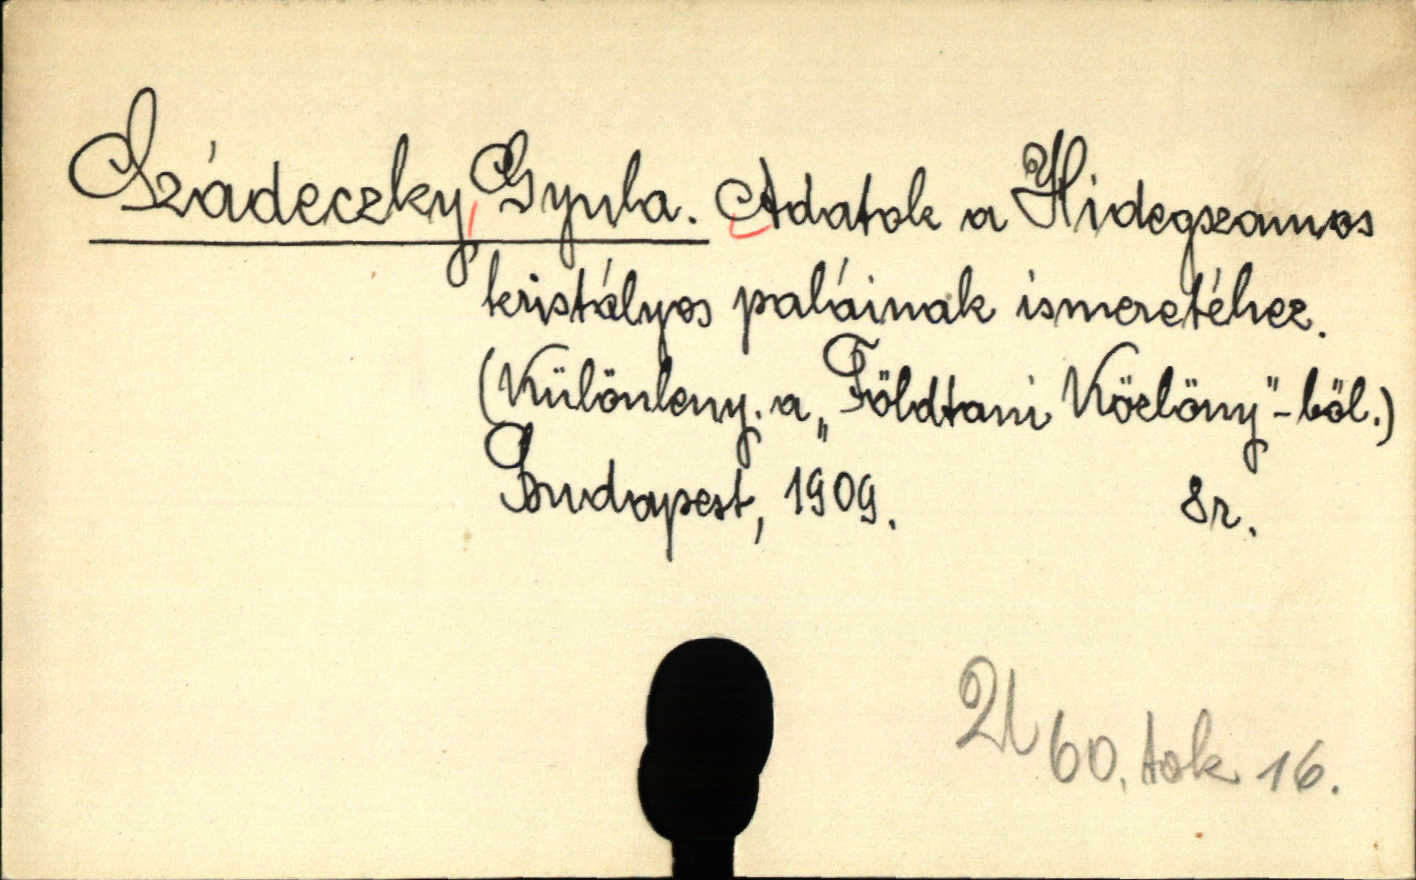 Szádeczky, Gyula. Adatok a Hidegszamos
kristályos paláinak ismeretéhez.
(Különleny. a „Földtani Közlöny"-ből.)
Budapest, 1909. 8r.
60. tok 16.